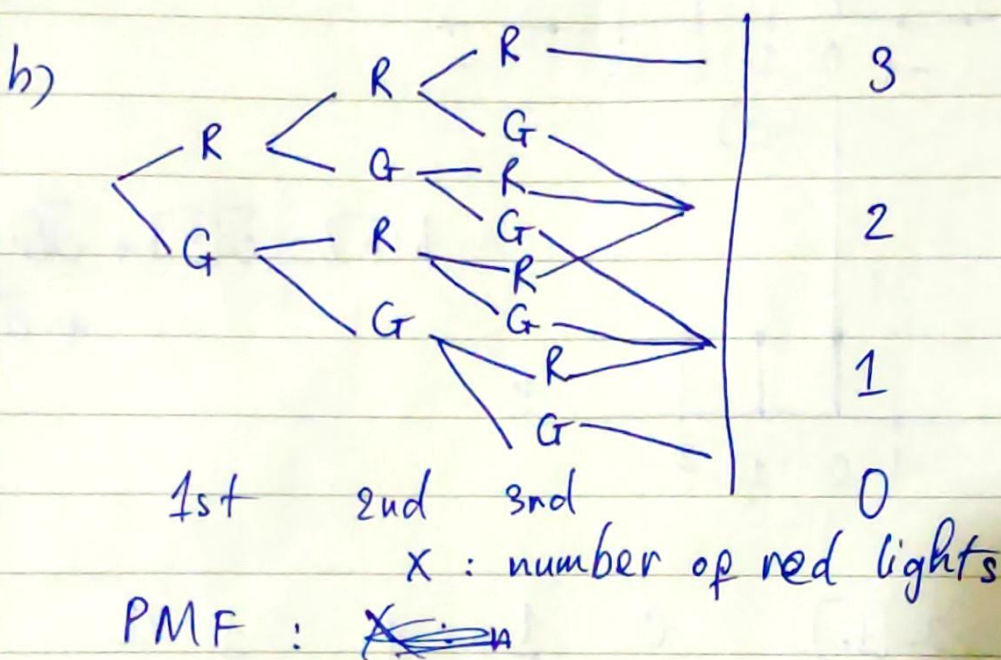 b)
R 3
R
G
R
G R 2
G
R
G R
G
G R 1
G
0
1st 2nd 3nd
X : number of red lights
PMF :